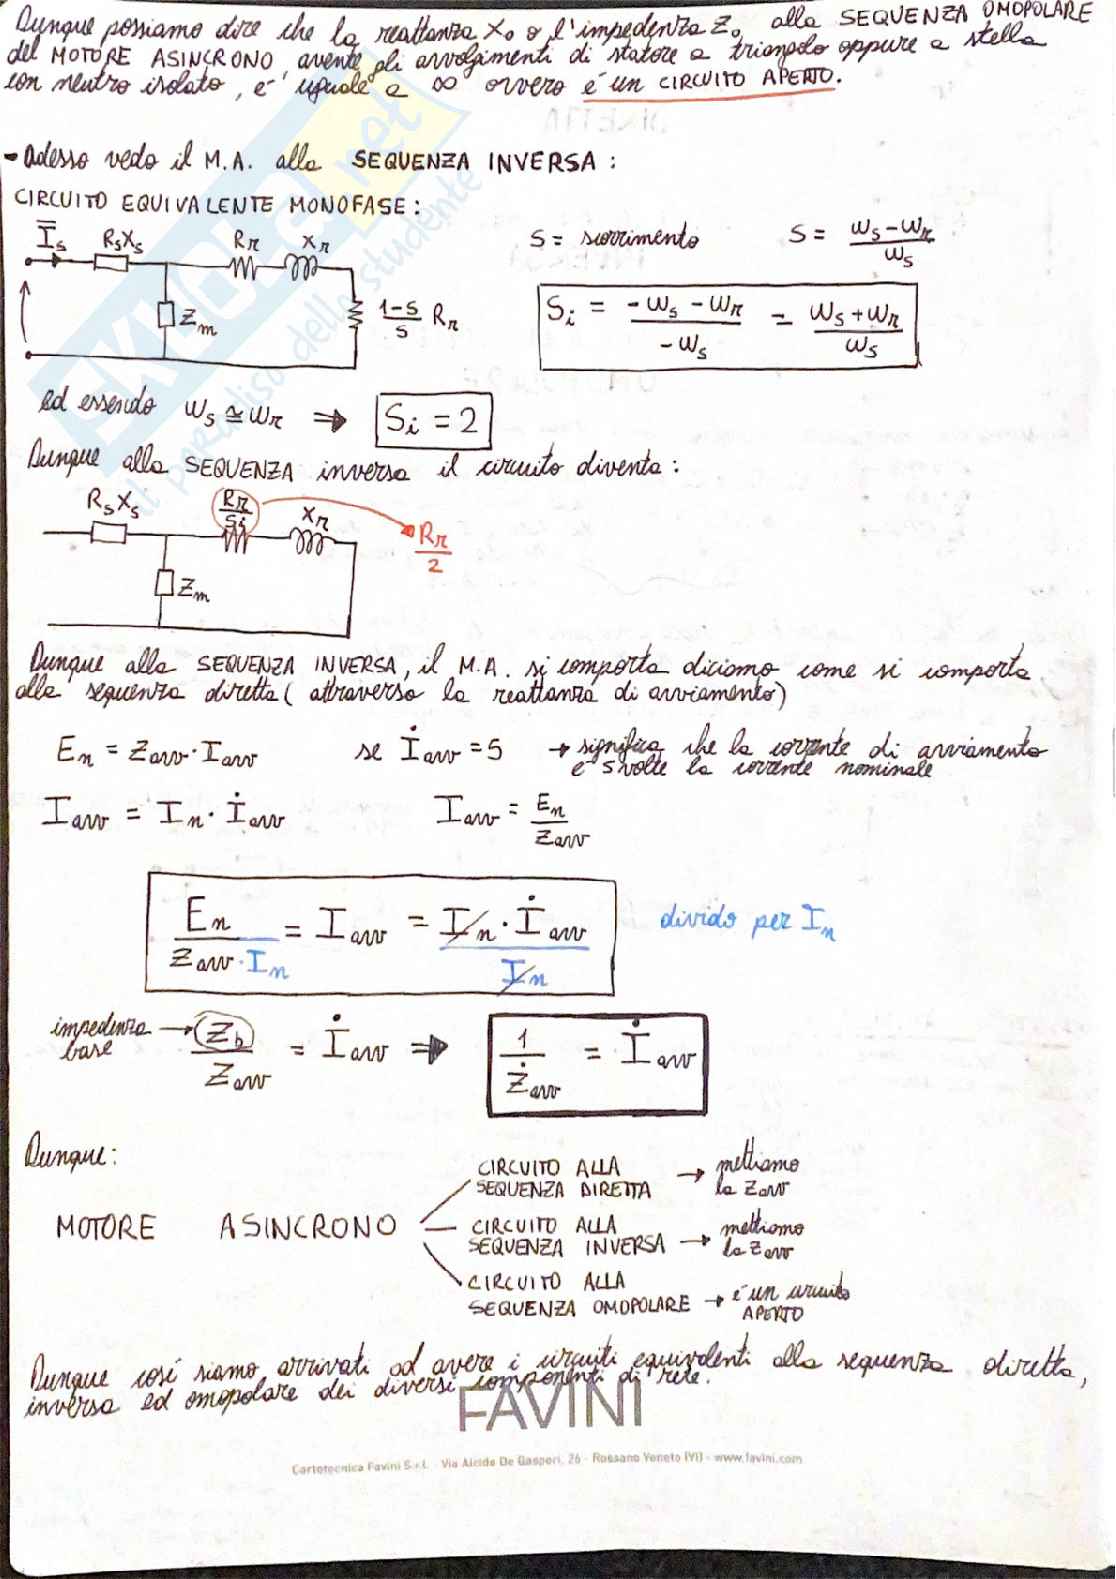 Dunque possiamo dire che la reattanza X₀ o l'impedenza Z₀ alla SEQUENZA OMOPOLARE
del MOTORE ASINCRONO avente gli avvolgimenti di statore a triangolo oppure a stella
con neutro isolato, é uguale a ∞ ovvero é un CIRCUITO APERTO.
- Adesso vedo il M.A. alla SEQUENZA INVERSA :
CIRCUITO EQUIVALENTE MONOFASE :
I̅s RsXs Rr Xr
Zm (1-s)/s Rr
S = scorrimento S = (ωs-ωr)/ωs
Si = (-ωs - ωr)/(-ωs) = (ωs + ωr)/ωs
ed essendo ωs ≅ ωr ⇒ Si = 2
Dunque alla SEQUENZA inversa il circuito diventa :
RsXs Rr/Si Xr Rr/2
Zm
Dunque alla SEQUENZA INVERSA, il M.A. si comporta diciamo come si comporta
alla sequenza diretta ( attraverso la reattanza di avviamento)
En = Zavv · Iavv se İavv = 5 → significa che la corrente di avviamento
é 5 volte la corrente nominale
Iavv = In · İavv Iavv = En/Zavv
En/(Zavv · In) = Iavv = (In · İavv)/In divido per In
impedenza base → Zb/Zavv = İavv ⇒ 1/żavv = İavv
Dunque:
CIRCUITO ALLA SEQUENZA DIRETTA → mettiamo la Zavv
MOTORE ASINCRONO CIRCUITO ALLA SEQUENZA INVERSA → mettiamo la Zavv
CIRCUITO ALLA SEQUENZA OMOPOLARE → é un circuito APERTO
Dunque cosí siamo arrivati ad avere i circuiti equivalenti alla sequenza diretta,
inversa ed omopolare dei diversi componenti di rete.
FAVINI
Cartotecnica Favini S.r.l. - Via Alcide De Gasperi, 26 - Rossano Veneto (VI) - www.favini.com
SKUOLA.net
il paradiso dello studente